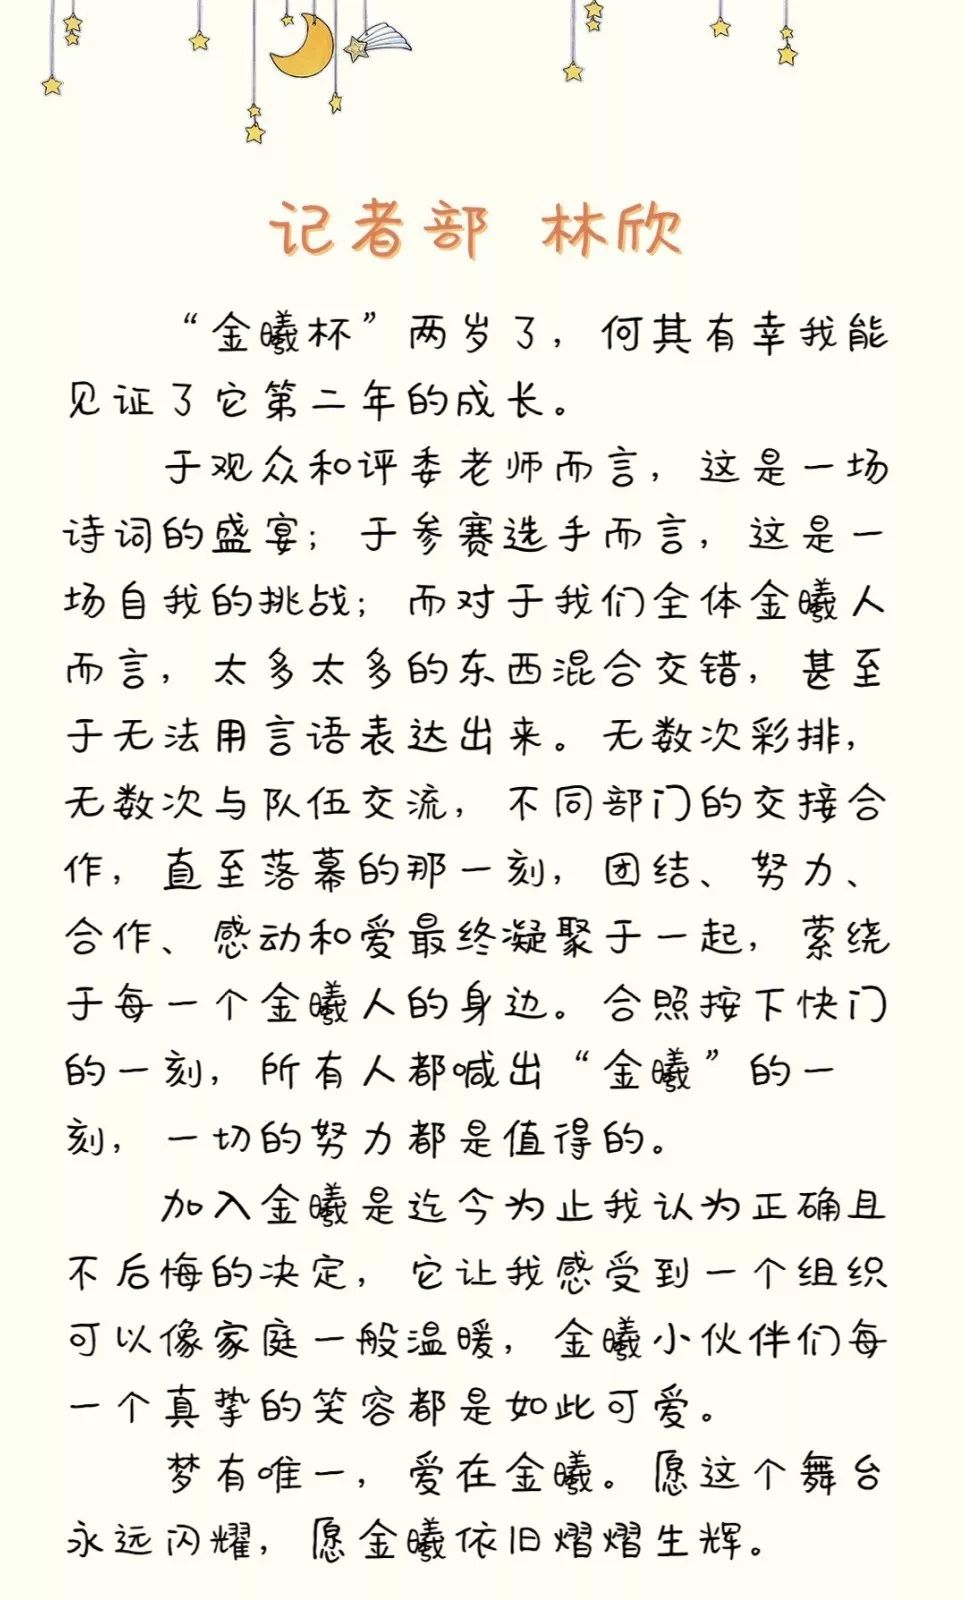 记者部 林欣
“金曦杯”两岁了，何其有幸我能
见证了它第二年的成长。
于观众和评委老师而言，这是一场
诗词的盛宴；于参赛选手而言，这是一
场自我的挑战；而对于我们全体金曦人
而言，太多太多的东西混合交错，甚至
于无法用言语表达出来。无数次彩排，
无数次与队伍交流，不同部门的交接合
作，直至落幕的那一刻，团结、努力、
合作、感动和爱最终凝聚于一起，萦绕
于每一个金曦人的身边。合照按下快门
的一刻，所有人都喊出“金曦”的一
刻，一切的努力都是值得的。
加入金曦是迄今为止我认为正确且
不后悔的决定，它让我感受到一个组织
可以像家庭一般温暖，金曦小伙伴们每
一个真挚的笑容都是如此可爱。
梦有唯一，爱在金曦。愿这个舞台
永远闪耀，愿金曦依旧熠熠生辉。